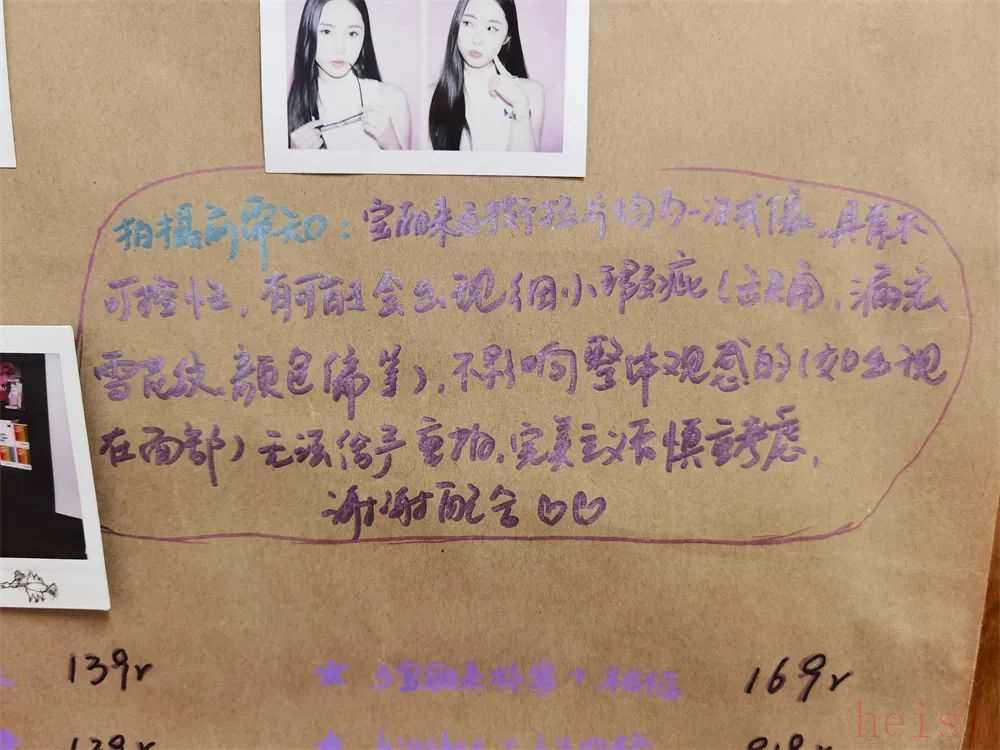 拍摄前需知:宝丽来立拍片均为一次成像,具有不
可控性,有可能会出现细小瑕疵(缺角、漏光
雪花纹、颜色偏差),不影响整体观感的(如出现
在面部)无法给予重拍,完美主义者慎重考虑,
谢谢配合
139r
★ 169r
139r
heis